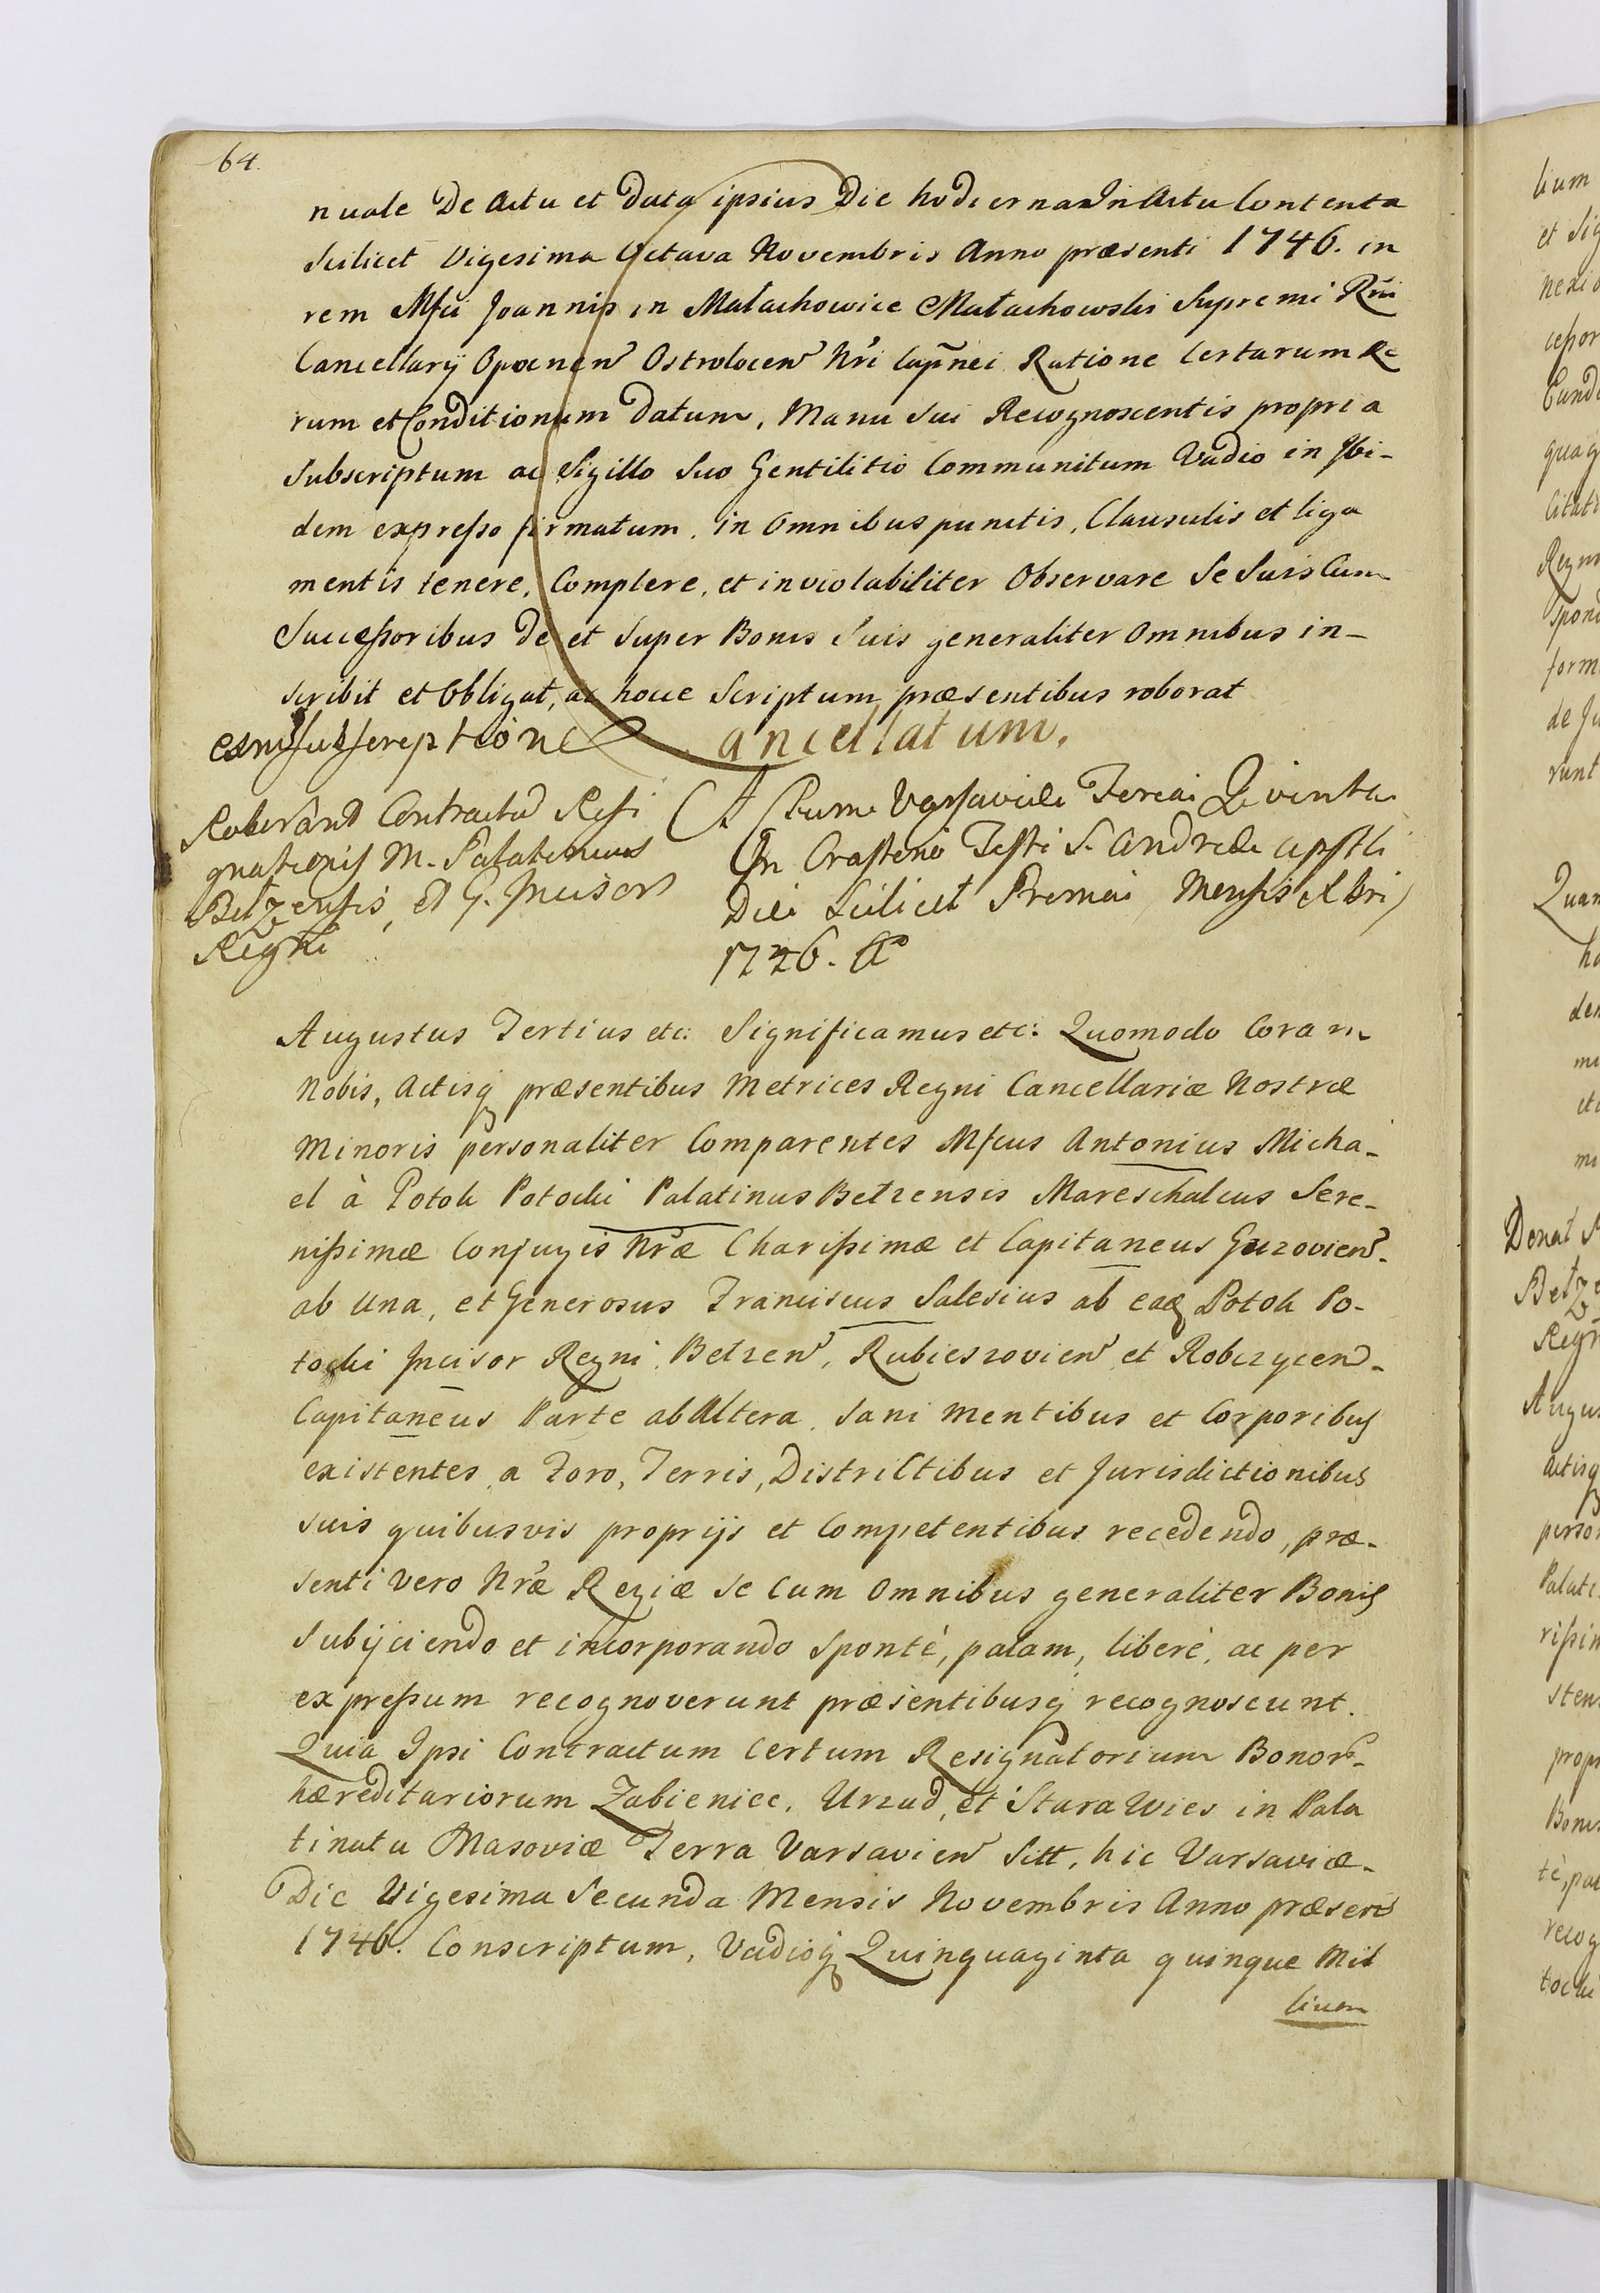 64.
nuale De Actu et Data ipsius Die hodierna In Actu Contenta
Scilicet Vigesima Octava Novembris Anno præsenti 1746. in
rem Mfci Joannis in Małachowice Małachowski Supremi Rni
Cancellarÿ Opocnen Ostrolocen Nri Capnei Ratione Certarum Re
rum et Conditionum Datum, Manu Sui Recognoscentis propria
Subscriptum ac Sigillo Suo Gentilitio Communitum Vadio in Ibi-
dem expresso firmatum. in Omnibus punctis, Clausulis et liga
mentis tenere, Complere, et inviolabiliter Observare Se Suis Cum
Successoribus De et Super Bonis Suis generaliter Omnibus in-
scribit et Obligat, ac hocce Scriptum præsentibus roborat
Cancellatum.
Roborant Contractus Resi
gnationis M. Palatinus
Betzensis, et G. Incisor
Regni
Actum Varsaviæ Feria Quinta
In Crastino Festi S. Andreæ Apstli
Die Scilicet Prima Mensis Xbri
1746. Ao
Augustus Tertius etc: Significamus etc: Quomodo Coram
Nobis, Actisq præsentibus Metrices Regni Cancellariæ Nostræ
Minoris personaliter Comparentes Mfcus Antonius Micha-
el à Potok Potocki Palatinus Betzensis Mareschalcus Sere-
nissimæ Conjugis Nræ Charissimæ et Capitaneus Guzovien.
ab una, et Generosus Franciscus Salesius ab eaq Potok Po-
tocki Incisor Regni, Betzen, Rubieszovien et Robczycen-
Capitaneus Parte ab Altera, Sani Mentibus et Corporibus
existentes, a Foro, Terris, Districtibus et Jurisdictionibus
suis quibusvis proprijs et Competentibus recedendo, præ-
senti vero Nræ Regiæ se Cum Omnibus generaliter Bonis
Subÿciendo et incorporando Sponté, palam, liberé, ac per
expressum recognoverunt præsentibusq recognoscunt.
Quia Ipsi Contractum Certum Resignatorium Bonor
hæreditariorum Zabieniec, Urzud, et Stara Wies in Pala
tinatu Masoviæ Terra Varsavien Sitt, hic Varsaviæ-
Die Vigesima Secunda Mensis Novembris Anno præsen
1746. Conscriptum, Vadioq Quinquaginta quinque Mil
lium